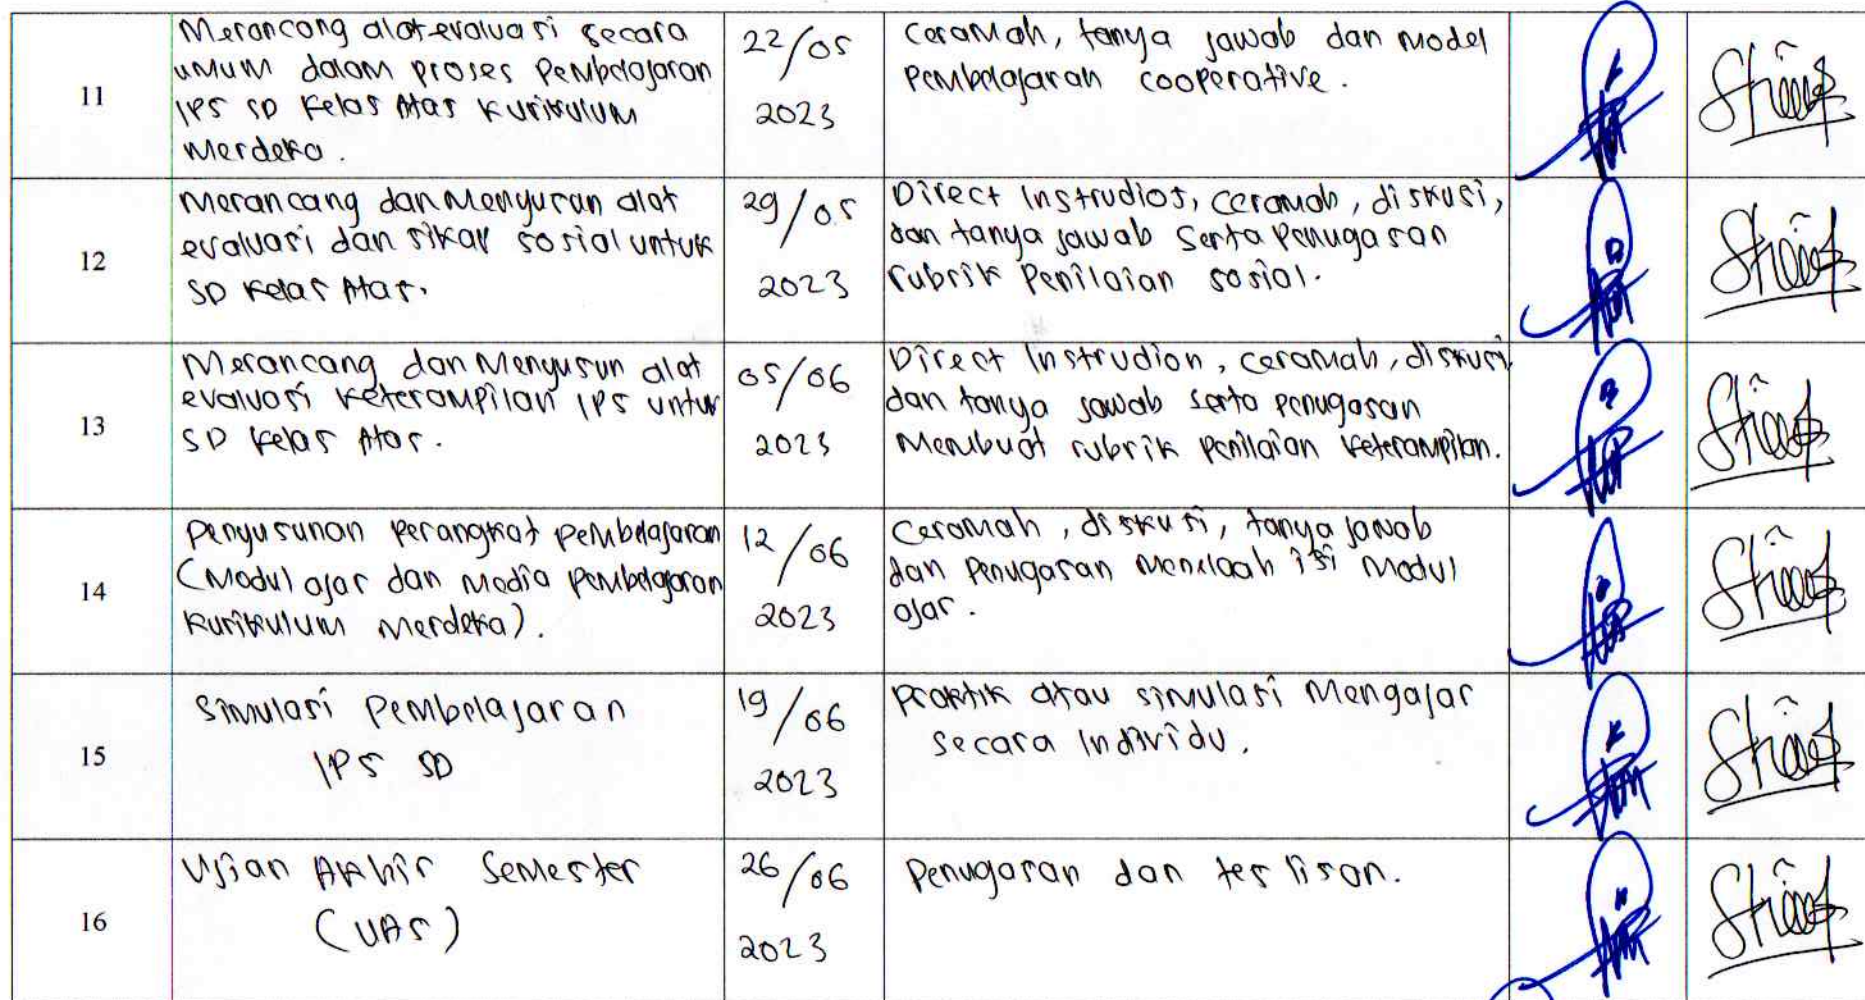 11
Merancang alat evaluasi secara
umum dalam proses Pembelajaran
IPS SD Kelas Atas Kurikulum
Merdeka.
22/05
2023
Ceramah, tanya jawab dan model
Pembelajaran cooperative.
12
Merancang dan Menyusun alat
evaluasi dan sikap sosial untuk
SD Kelas Atas.
29/05
2023
Direct Instrudios, ceramah, diskusi,
dan tanya jawab Serta Penugasan
rubrik Penilaian sosial.
13
Merancang dan Menyusun alat
evaluasi keterampilan IPS untuk
SD Kelas Atas.
05/06
2023
Direct Instrudion, ceramah, diskusi
dan tanya jawab serta penugasan
Membuat rubrik penilaian keterampilan.
14
Penyusunan Perangkat pembelajaran
(Modul ajar dan Media pembelajaran
Kurikulum Merdeka).
12/06
2023
Ceramah, diskusi, tanya jawab
dan Penugasan Menelaah isi Modul
ajar.
15
Simulasi Pembelajaran
IPS SD
19/06
2023
Praktik atau simulasi Mengajar
secara Individu.
16
Ujian Akhir Semester
(UAS)
26/06
2023
Penugasan dan tes lisan.